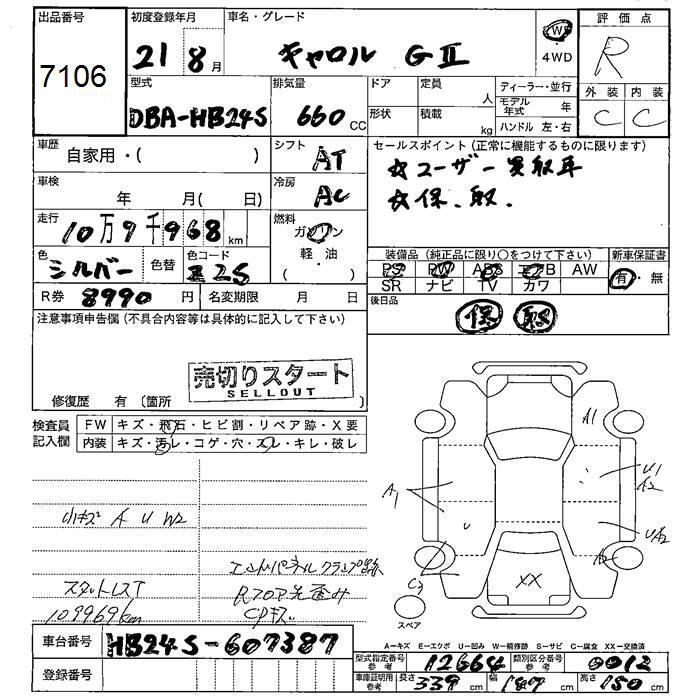 出品番号
7106
初度登録年月
21 8月
車名・グレード
キャロル GⅡ
2WD
4WD
評価点
R
外装 内装
C C
型式
DBA-HB24S
排気量
660 cc
ドア
形状
定員 人
積載 kg
ディーラー・並行
モデル年式 年
ハンドル 左・右
車歴
自家用・( )
シフト
AT
セールスポイント (正常に機能するものに限ります)
☆ユーザー買取車
☆保.取.
車検
年 月( 日)
冷房
AC
走行
10万9千968km
燃料
ガソリン
軽・油
( )
色
シルバー
色替
色コード
Z2S
装備品 (純正品に限り○をつけて下さい)
PS PW ABS エアB AW
SR ナビ TV カワ
新車保証書
有・無
R券 8990円
名変期限 月 日
後日品
保 取
注意事項申告欄 (不具合内容等は具体的に記入して下さい)
売切りスタート
SELLOUT
修復歴 有 (箇所 )
検査員
記入欄
FW キズ・飛石・ヒビ割・リペア跡・X要
内装 キズ・汚レ・コゲ・穴・スレ・キレ・破レ
小キズ A U W2
スタットレスT
109969km
エンドパネルクランプ跡
Rフロア先歪み
CPキズ
A1
U1
A2
A1
U
UA2
A2
C2
XX
スペア
A=キズ E=エクボ U=凹み W=補修跡 S=サビ C=腐食 XX=交換済
車台番号
HB24S-607387
登録番号
型式指定番号
参考
12664
類別区分番号
参考
0012
車庫証明用
参考
長さ 339 cm
幅 147 cm
高さ 150 cm